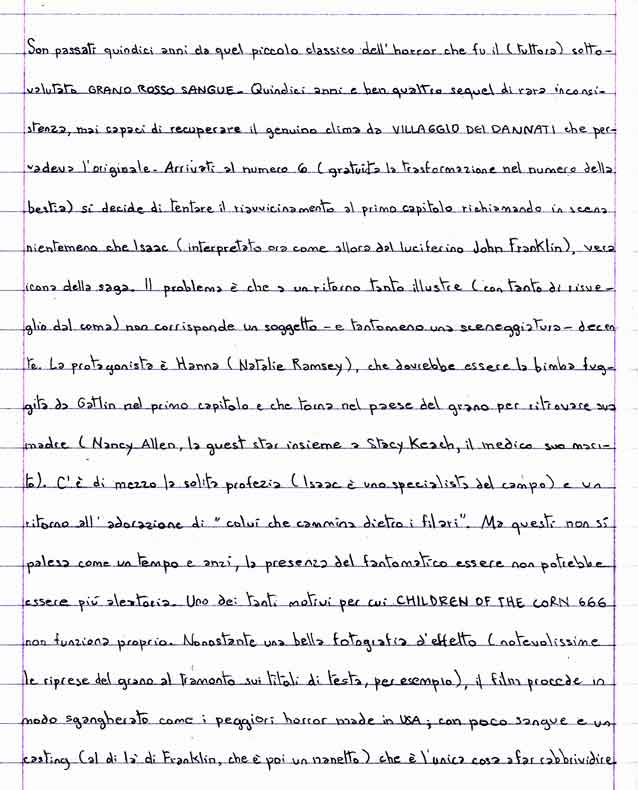 Son passati quindici anni da quel piccolo classico dell'horror che fu il (tuttora) sotto-
valutato GRANO ROSSO SANGUE. Quindici anni e ben quattro sequel di rara inconsi-
stenza, mai capaci di recuperare il genuino clima da VILLAGGIO DEI DANNATI che per-
vadeva l'originale. Arrivati al numero 6 (gratuita la trasformazione nel numero della
bestia) si decide di tentare il riavvicinamento al primo capitolo richiamando in scena
nientemeno che Isaac (interpretato ora come allora dal luciferino John Franklin), vera
icona della saga. Il problema è che a un ritorno tanto illustre (con tanto di risve-
glio dal coma) non corrisponde un soggetto - e tantomeno una sceneggiatura - decen
te. La protagonista è Hanna (Natalie Ramsey), che dovrebbe essere la bimba fug-
gita da Gatlin nel primo capitolo e che torna nel paese del grano per ritrovare sua
madre (Nancy Allen, la guest star insieme a Stacy Keach, il medico suo mari-
to). C'è di mezzo la solita profezia (Isaac è uno specialista del campo) e un
ritorno all'adorazione di "colui che cammina dietro i filari". Ma questi non si
palesa come un tempo e anzi, la presenza del fantomatico essere non potrebbe
essere più aleatoria. Uno dei tanti motivi per cui CHILDREN OF THE CORN 666
non funziona proprio. Nonostante una bella fotografia d'effetto (notevolissime
le riprese del grano al tramonto sui titoli di testa, per esempio), il film procede in
modo sgangherato come i peggiori horror made in USA; con poco sangue e un
casting (al di là di Franklin, che è poi un nanetto) che è l'unica cosa a far rabbrividire